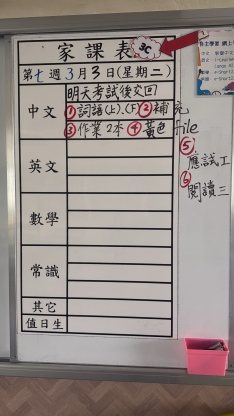 家課表 3C
第七週3月3日(星期二)
中文
明天考試後交回
①詞語(上)、(下)②補充
③作業2本④黃色file
⑤應試工
⑥閱讀三
英文
數學
常識
其它
值日生